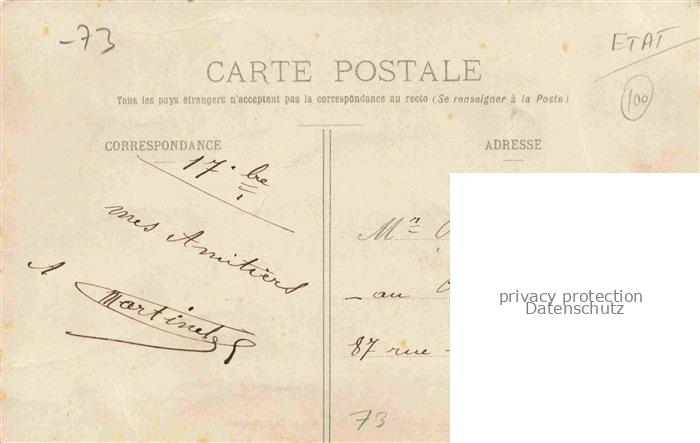 -73
ETAT
100
CARTE POSTALE
Tous les pays étrangers n'acceptent pas la correspondance au recto (Se renseigner à la Poste)
CORRESPONDANCE
17. be
mes Amitiers
A
Martinet
ADRESSE
Mr
- au
87 rue
73
privacy protection
Datenschutz